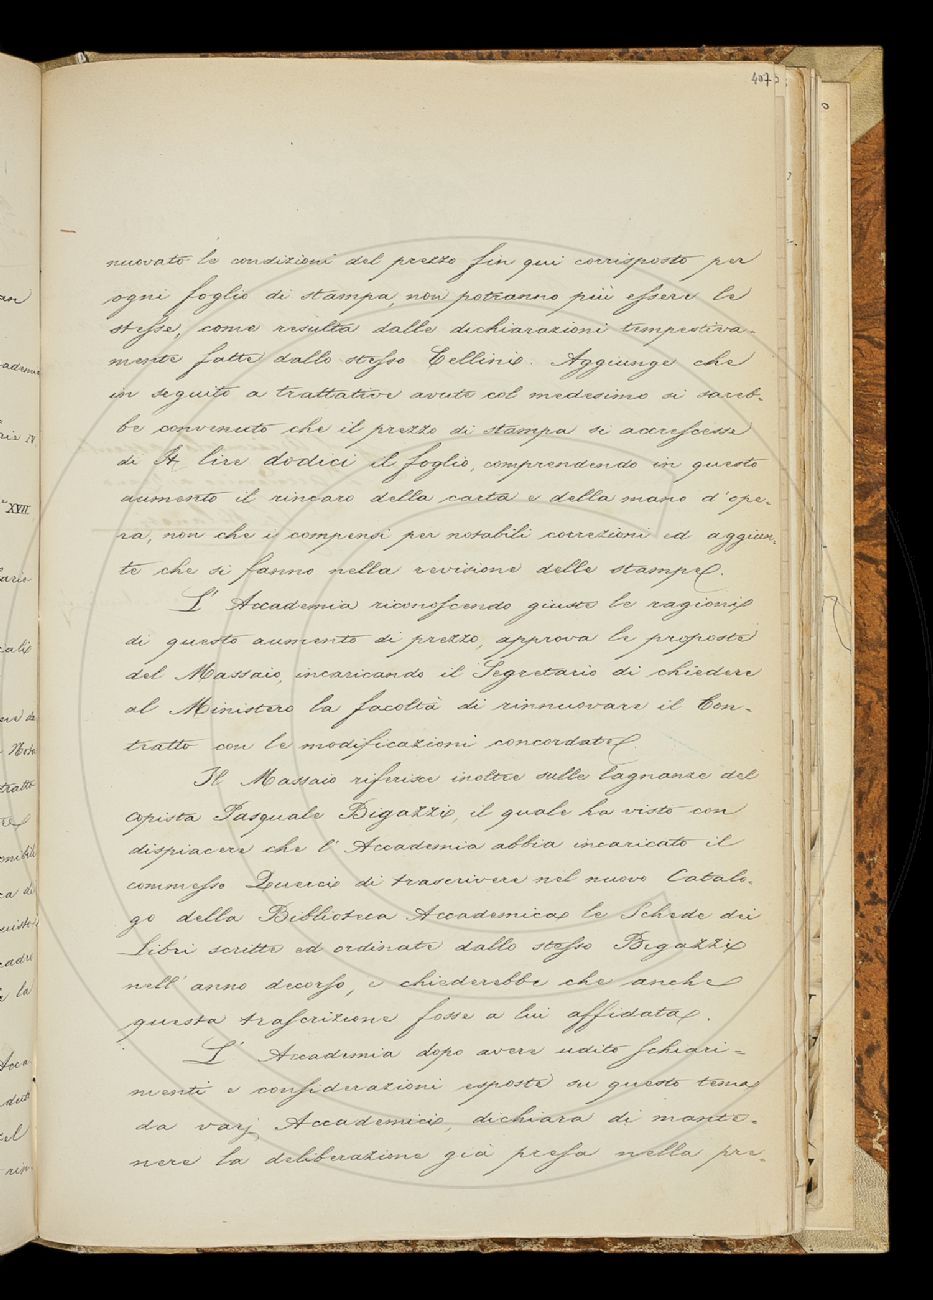 407
nuovato le condizioni del prezzo fin qui corrisposto per
ogni foglio di stampa, non potranno più essere le
stesse, come risulta dalle dichiarazioni tempestiva-
mente fatte dallo stesso Cellini. Aggiunge che
in seguito a trattative avute col medesimo si sareb-
be convenuto che il prezzo di stampa si accrescesse
di It. lire dodici il foglio, comprendendo in questo
aumento il rincaro della carta e della mano d'ope-
ra, non che i compensi per notabili correzioni ed aggiun-
te che si fanno nella revisione delle stampe.
L'Accademia riconoscendo giuste le ragioni
di questo aumento di prezzo, approva le proposte
del Massaio, incaricando il Segretario di chiedere
al Ministero la facoltà di rinnuovare il Con-
tratto con le modificazioni concordate.
Il Massaio riferisce inoltre sulle lagnanze del
copista Pasquale Bigazzi, il quale ha visto con
dispiacere che l'Accademia abbia incaricato il
commesso Querci di trascrivere nel nuovo Catalo-
go della Biblioteca Accademica le Schede dei
Libri scritte ed ordinate dallo stesso Bigazzi
nell'anno decorso, e chiederebbe che anche
questa trascrizione fosse a lui affidata.
L'Accademia dopo avere udito schiari-
menti e considerazioni esposte su questo tema
da varj Accademici, dichiara di mante-
nere la deliberazione già presa nella pre-